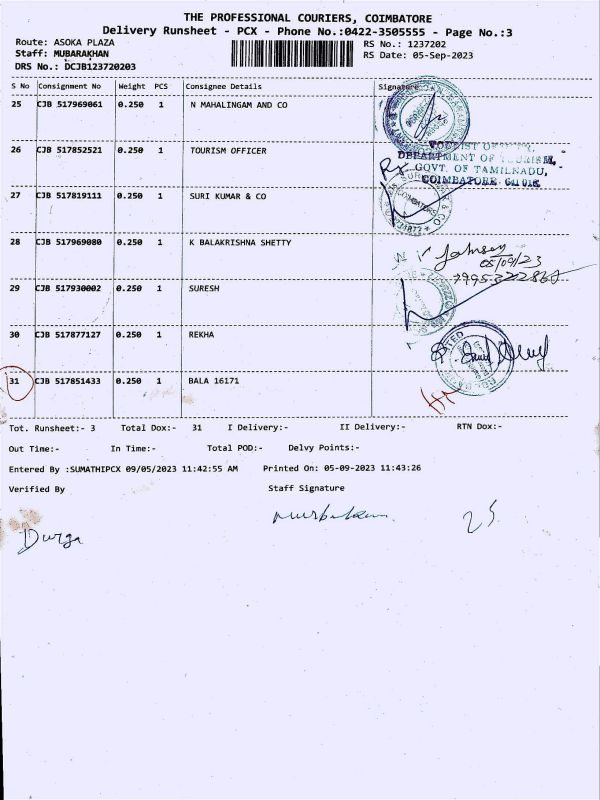 THE PROFESSIONAL COURIERS, COIMBATORE
Delivery Runsheet - PCX - Phone No.:0422-3505555 - Page No.:3
Route: ASOKA PLAZA RS No.: 1237202
Staff: MUBARAKHAN RS Date: 05-Sep-2023
DRS No.: DCJB123720203
S No Consignment No Weight PCS Consignee Details Signature
25 CJB 517969061 0.250 1 N MAHALINGAM AND CO
26 CJB 517852521 0.250 1 TOURISM OFFICER
TOURIST OFFICE,
DEPARTMENT OF TOURISM,
GOVT. OF TAMILNADU,
COIMBATORE - 641 018
27 CJB 517819111 0.250 1 SURI KUMAR & CO
COIMBATORE
28 CJB 517969080 0.250 1 K BALAKRISHNA SHETTY
05/09/23
29 CJB 517930002 0.250 1 SURESH
30 CJB 517877127 0.250 1 REKHA
31 CJB 517851433 0.250 1 BALA 16171
Tot. Runsheet:- 3 Total Dox:- 31 I Delivery:- II Delivery:- RTN Dox:-
Out Time:- In Time:- Total POD:- Delvy Points:-
Entered By :SUMATHIPCX 09/05/2023 11:42:55 AM Printed On: 05-09-2023 11:43:26
Verified By Staff Signature
Durga 25